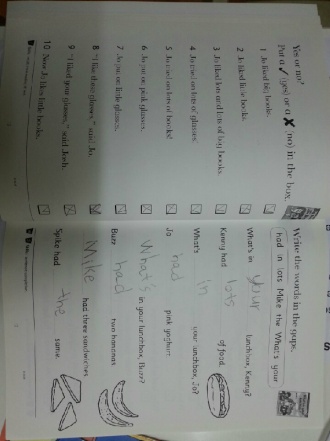 Yes or no?
Put a ✓ (yes) or a ✗ (no) in the box.
1 Jo liked big books.
2 Jo liked little books.
3 Jo liked lots and lots of big books.
4 Jo tried on lots of glasses.
5 Jo tried on lots of books!
6 Jo put on pink glasses.
7 Jo put on little glasses.
8 "I like these glasses," said Jo.
9 "I liked your glasses," said Josh.
10 Now Jo likes little books.
Write the words in the gaps.
had in lots Mike the What's your
What's in your lunchbox, Kenny?
Kenny had lots of food.
What's in your lunchbox, Jo?
Jo had pink yoghurt.
What's in your lunchbox, Buzz?
Buzz had two bananas.
Mike had three sandwiches.
Spike had the same.